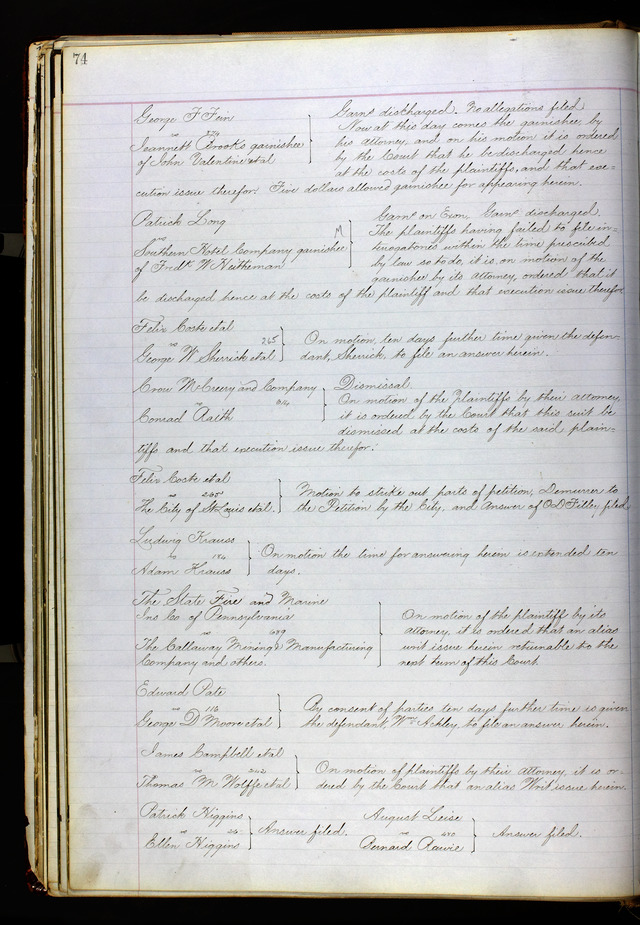 74
George F Fein
vs 174
Jeannett Brooks garnishee
of John Valentine etal
Garns discharged. No allegations filed
Now at this day comes the garnishee by
his attorney, and on his motion it is ordered
by the Court that he be discharged hence
at the costs of the plaintiffs, and that exe-
cution issue therefor. Five dollars allowed garnishee for appearing herein.
Patrick Long
vs
Southern Hotel Company garnishee
of Fredk W Keitheman
Garns on Exon. Garns discharged.
The plaintiffs having failed to file in-
terrogatories within the time prescribed
by law so to do, it is on motion of the
garnishee by its attorney, ordered that it
be discharged hence at the costs of the plaintiff and that execution issue therefor
Felix Coste etal
vs 265
George W Sherrick etal
On motion, ten days further time given the defen-
dant, Sherrick, to file an answer herein.
Crow McCreery and Company
vs
Conrad Raith
Dismissal
On motion of the Plaintiffs by their attorney,
it is ordered by the Court that this suit be
dismissed at the costs of the said plain-
tiffs and that execution issue therefor.
Felix Coste etal
vs 265
The City of St Louis etal.
Motion to strike out parts of petition, Demurrer to
the Petition by the City, and Answer of O D Filley filed
Ludwig Krauss
vs 184
Adam Krauss
On motion the time for answering herein is extended ten
days.
The State Fire and Marine
Ins Co. of Pennsylvania
vs
The Callaway Mining & Manufacturing
Company and others.
On motion of the plaintiff by its
attorney, it is ordered that an alias
writ issue herein returnable to the
next term of this Court
Edward Pate
vs 116
George D Moore etal
By consent of parties ten days further time is given
the defendant, Wm Ackley, to file an answer herein.
James Campbell etal
vs 242
Thomas M Wolffe etal
On motion of plaintiffs by their attorney, it is or-
dered by the Court that an alias Writ issue herein.
Patrick Higgins
vs
Ellen Higgins
Answer filed.
August Leise
vs
Bernard Rawie
Answer filed.